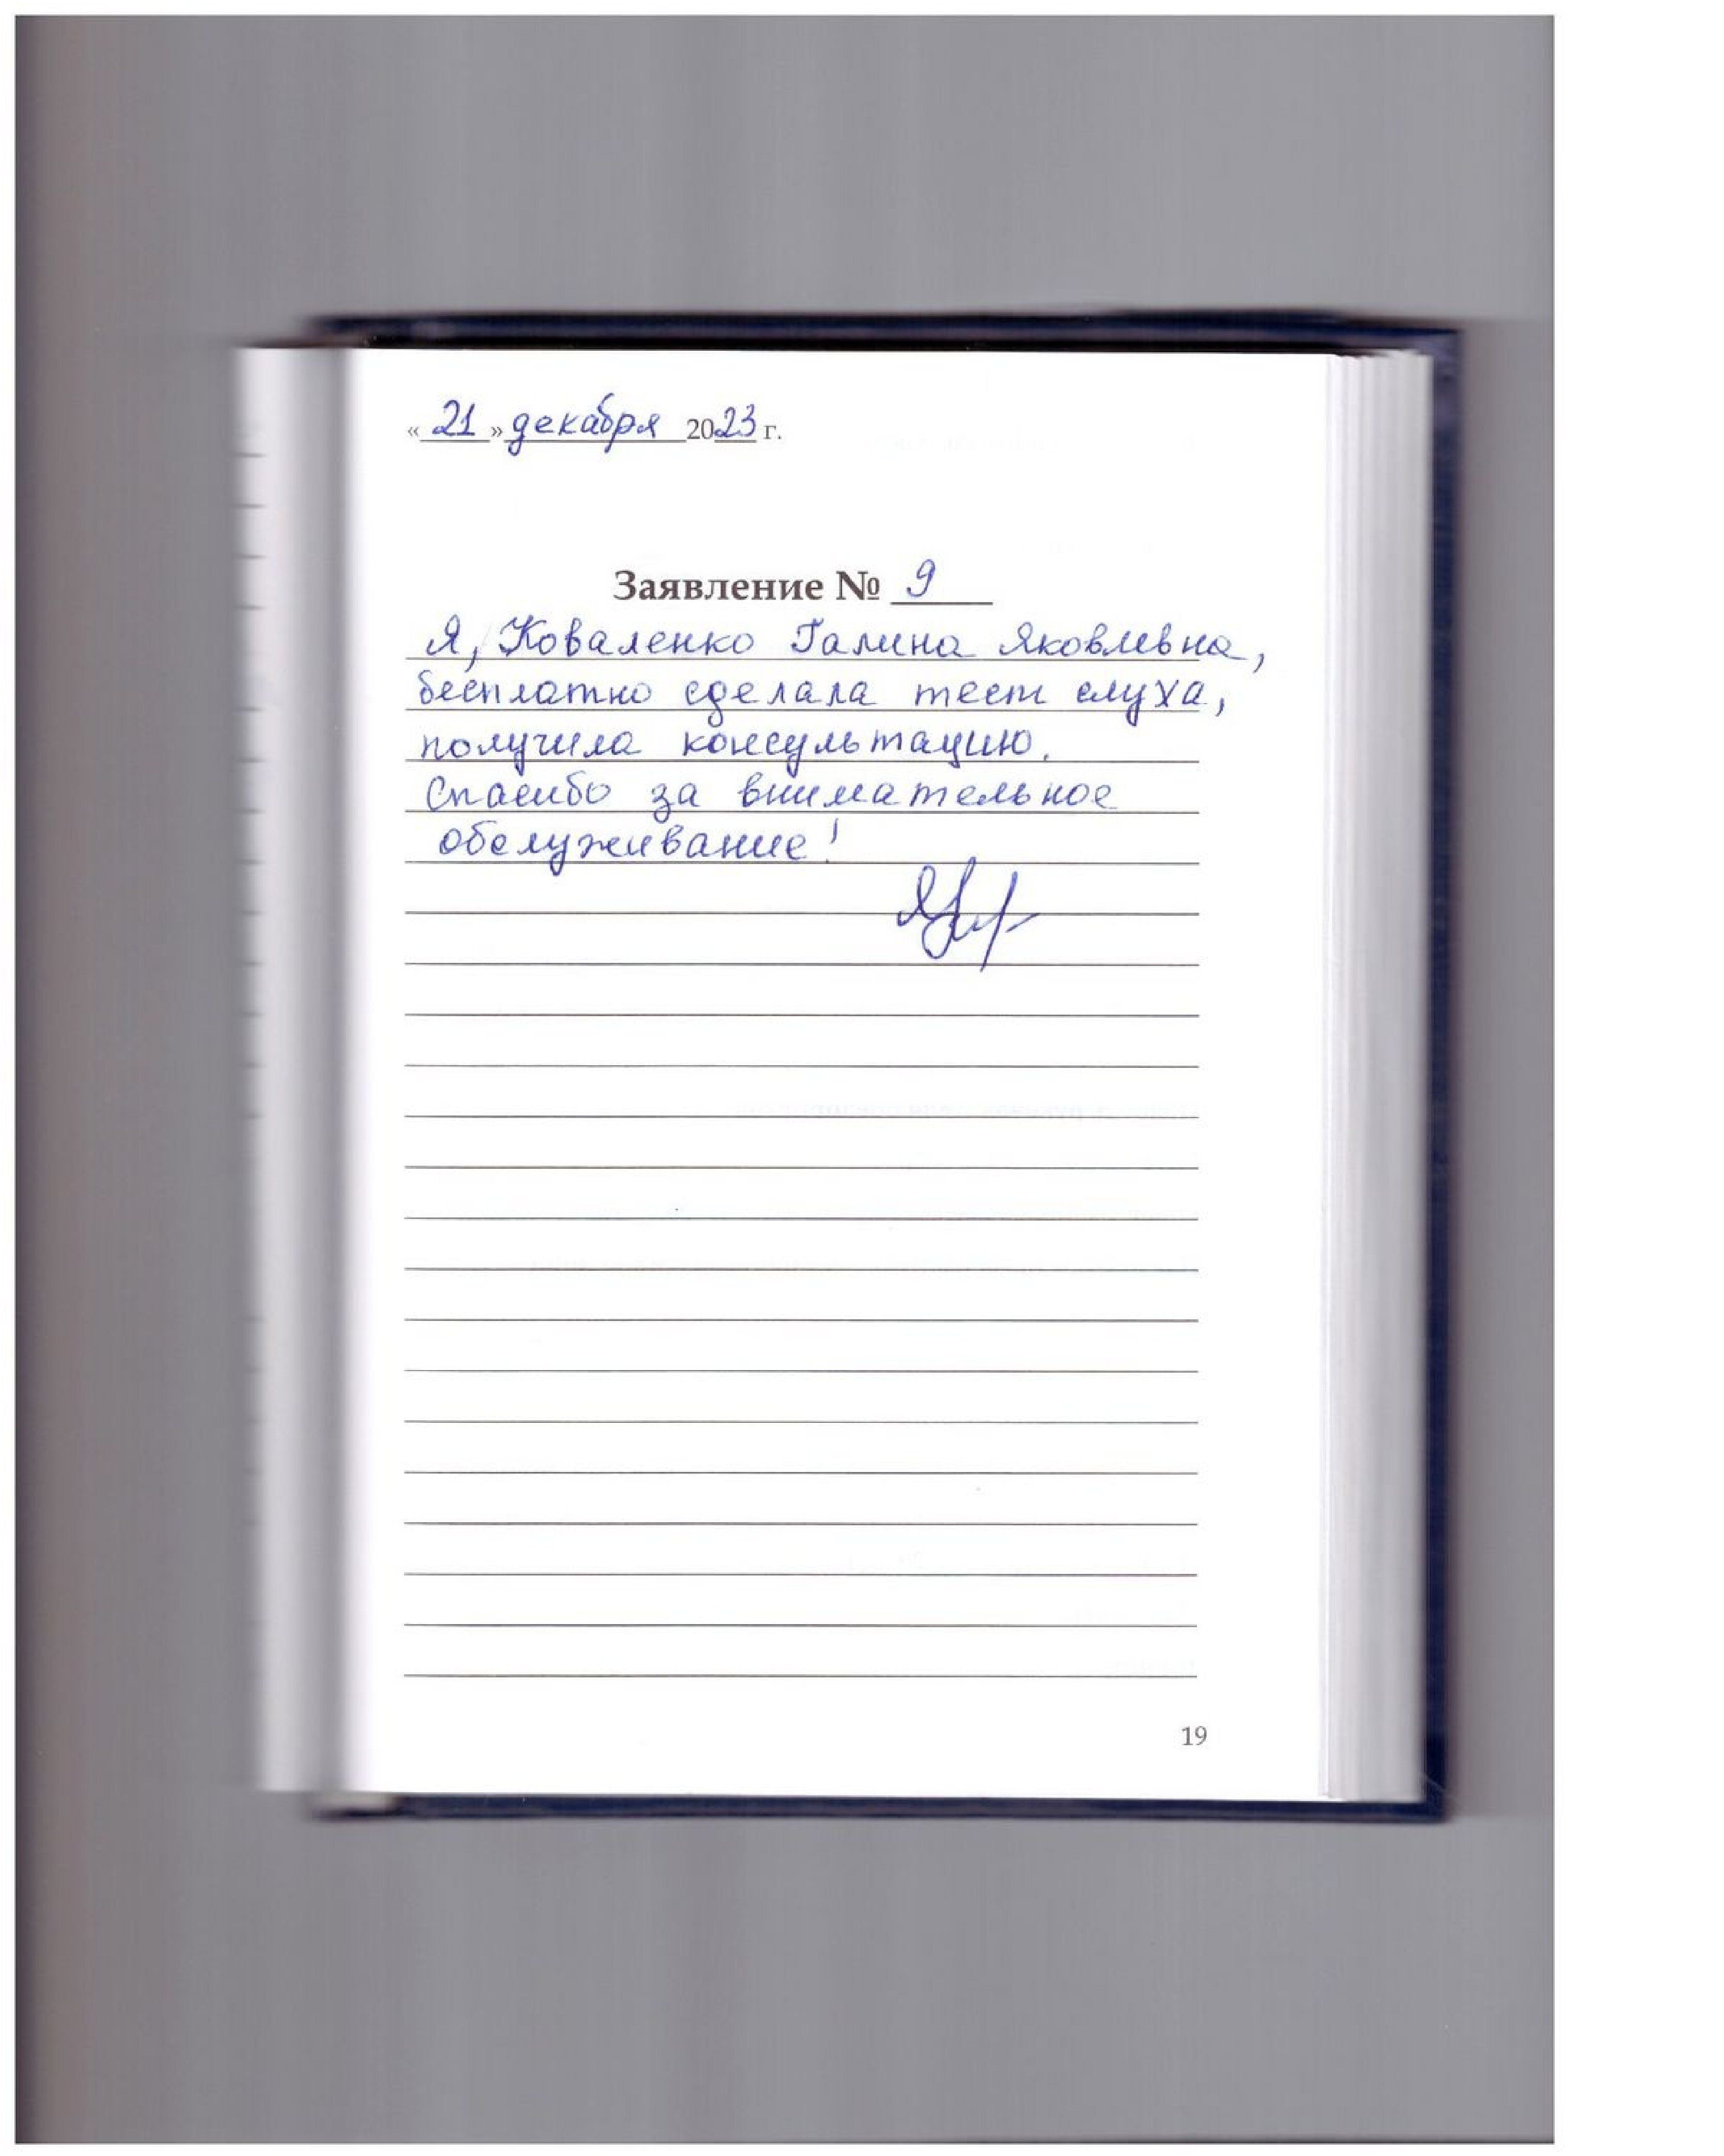 « 21 » декабря 2023 г.
Заявление № 9
Я, Коваленко Галина Яковлевна,
бесплатно сделала тест слуха,
получила консультацию.
Спасибо за внимательное
обслуживание!
19